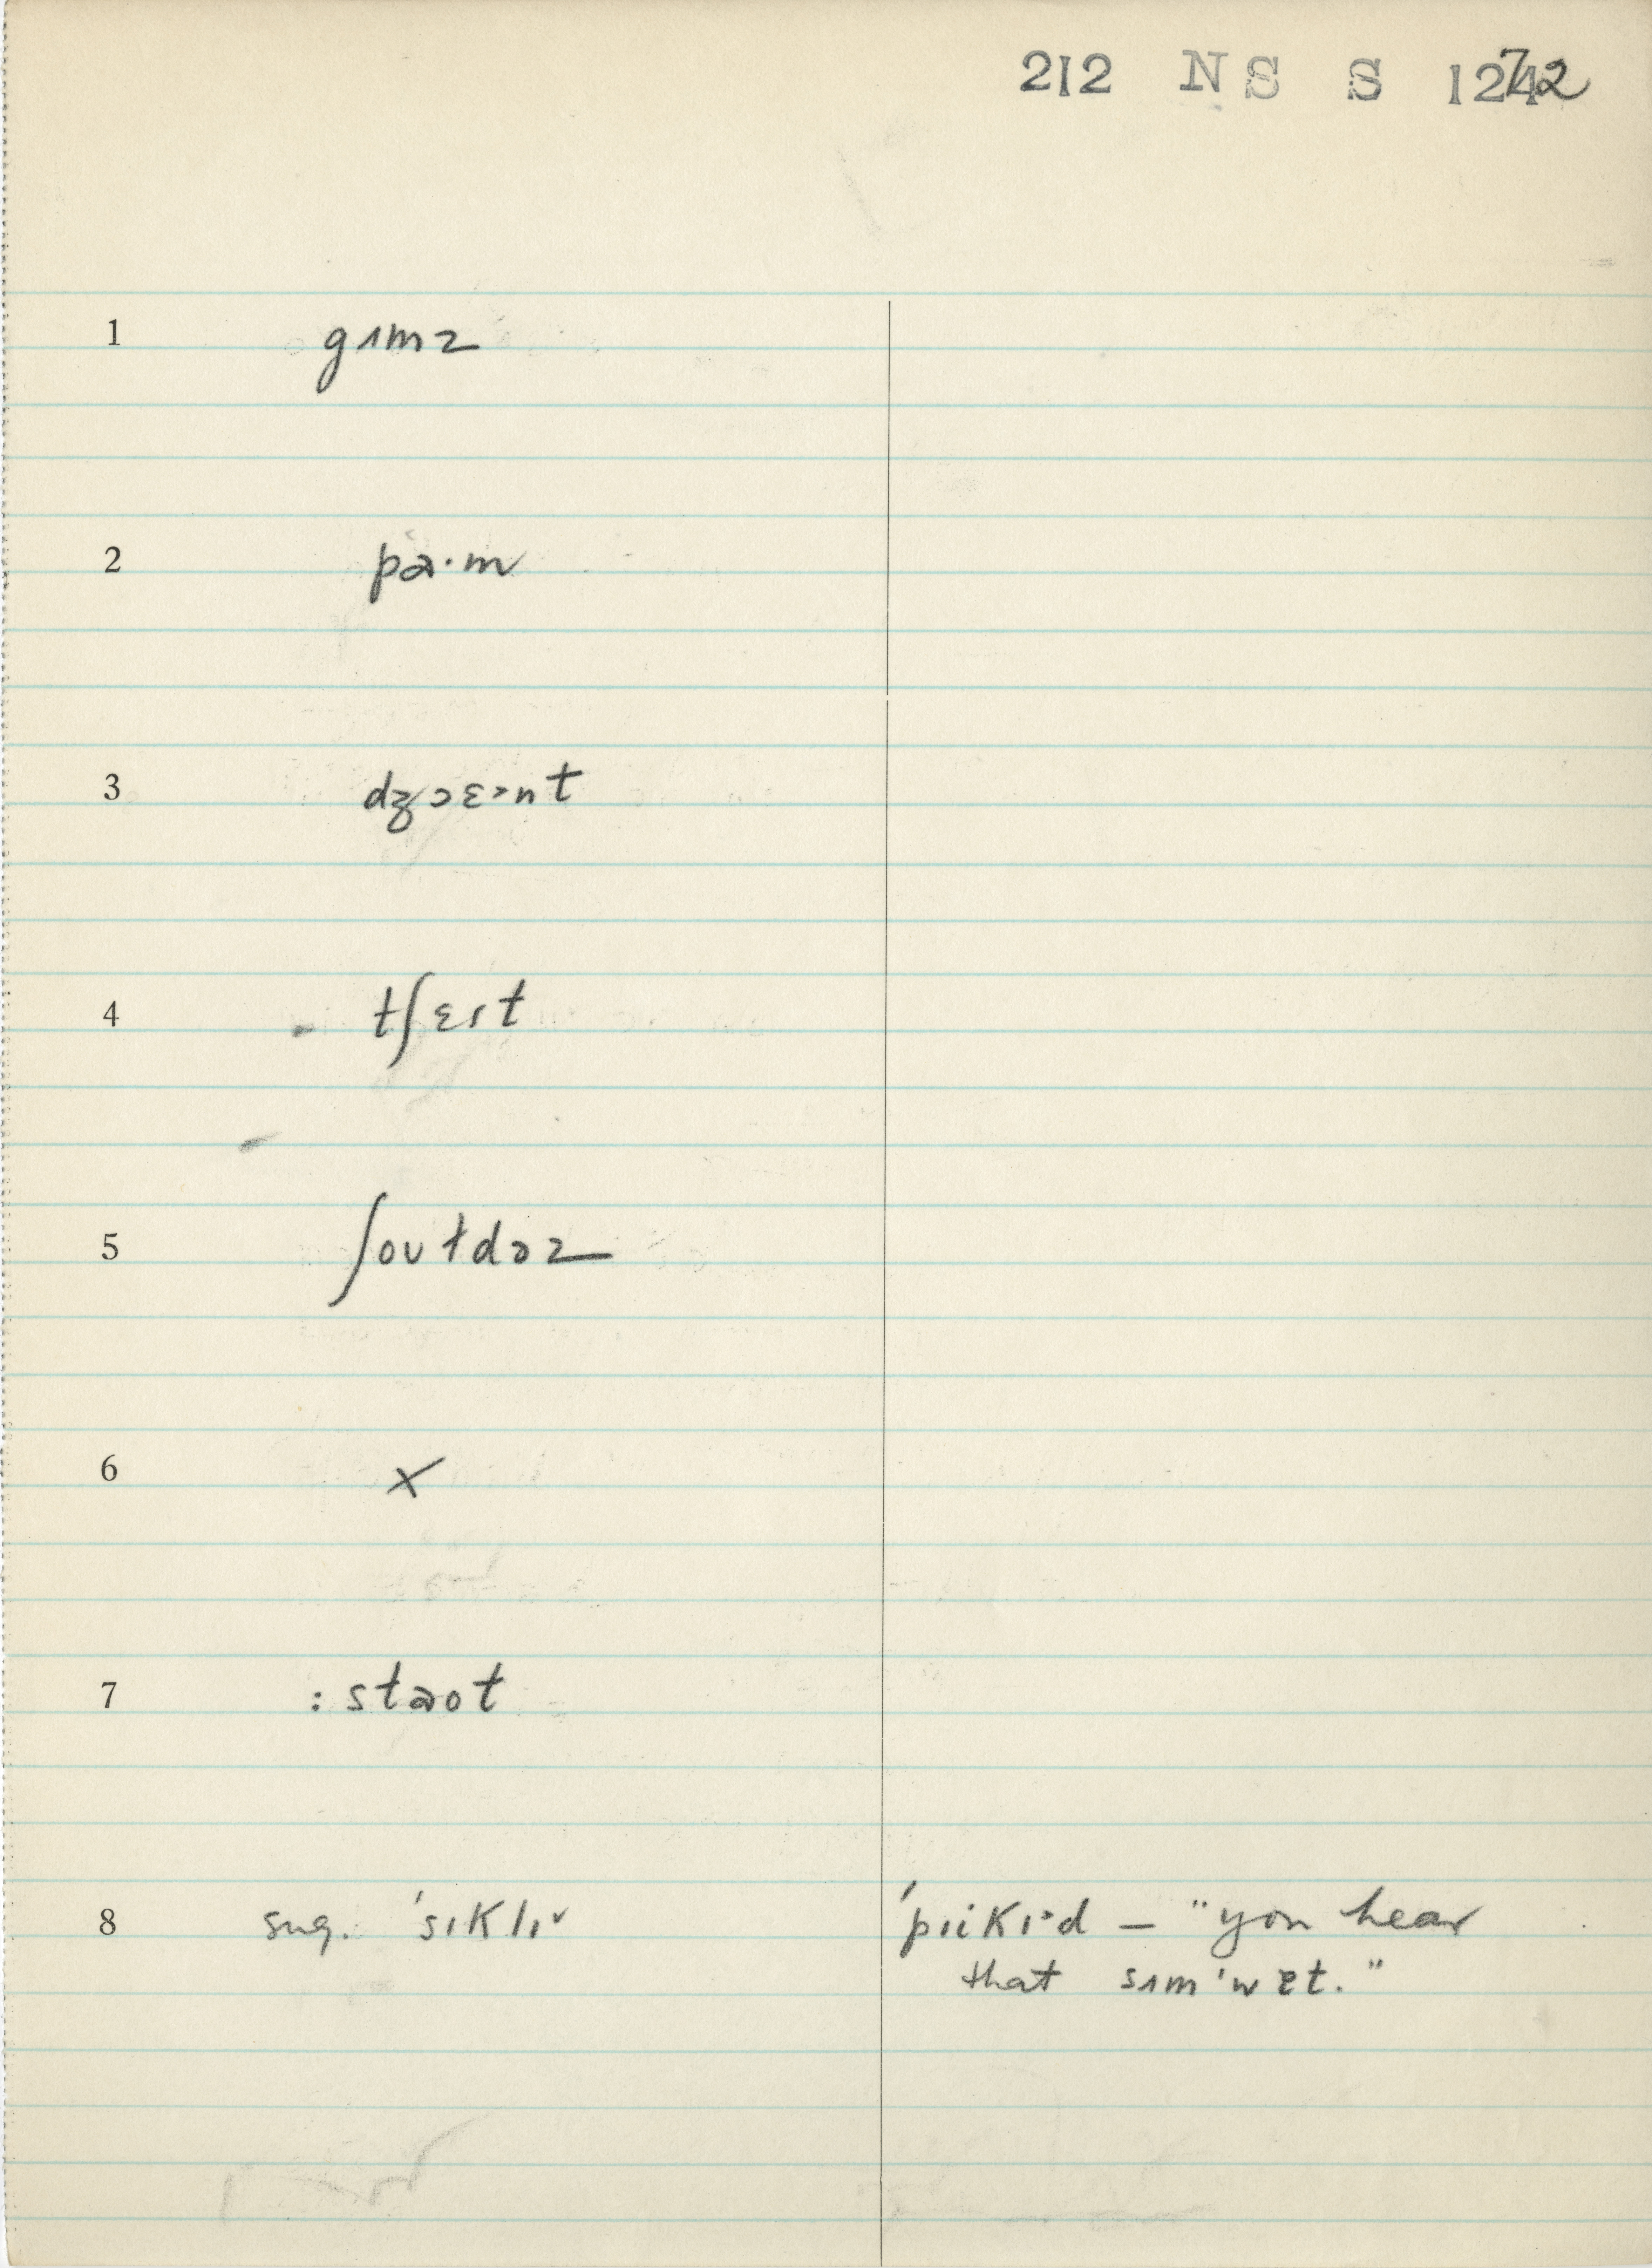 212 NS S 1272
1 gʌmz
2 pɑ·m
3 dʒɔɛ˃nt
4 tʃɛst
5 ʃoʊtdəz
6 x
7 : staot
8 sug. ˈsɪklɪ˅ ˈpiikɪ˃d — "you hear
that sʌmˈwɛt."